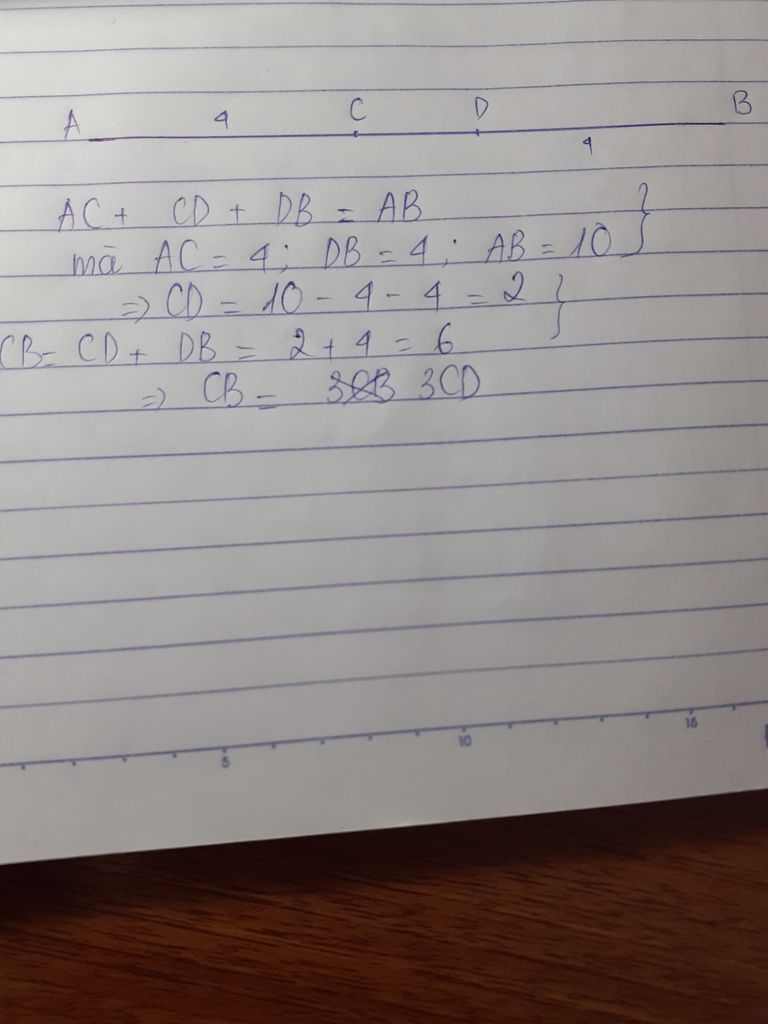 A 4 C D B
4
AC + CD + DB = AB }
mà AC = 4; DB = 4; AB = 10
=> CD = 10 - 4 - 4 = 2 }
CB = CD + DB = 2 + 4 = 6
=> CB = 3CB 3CD
5 10 15